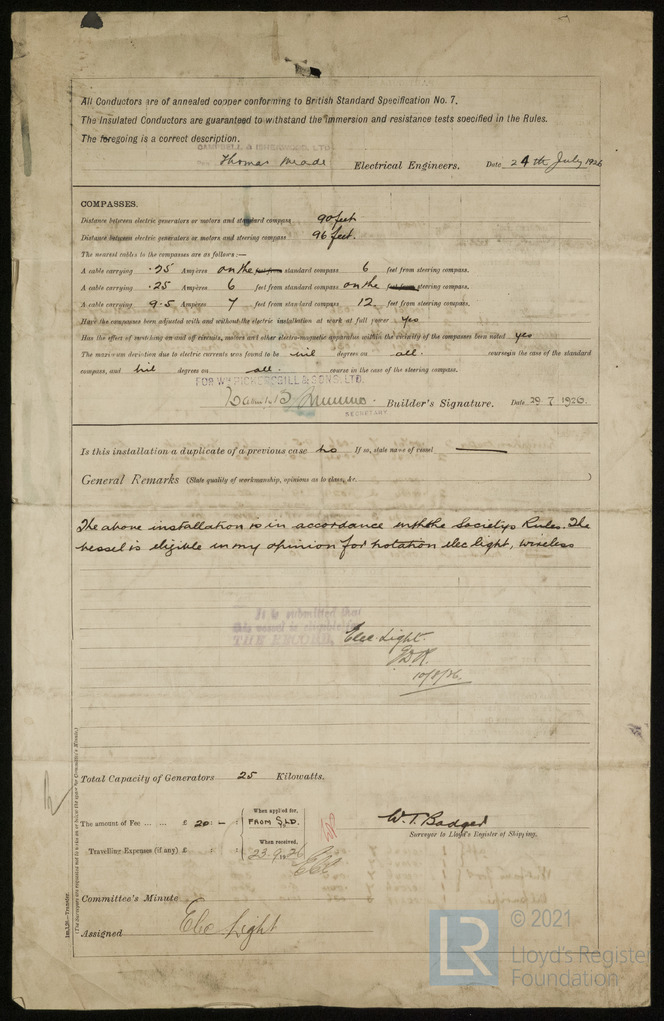 All Conductors are of annealed copper conforming to British Standard Specification No. 7.
The Insulated Conductors are guaranteed to withstand the immersion and resistance tests specified in the Rules.
The foregoing is a correct description.
CAMPBELL & ISHERWOOD, LTD.
Thomas Meade Electrical Engineers. Date 24th July 1926
COMPASSES.
Distance between electric generators or motors and standard compass 90 feet
Distance between electric generators or motors and steering compass 96 feet.
The nearest cables to the compasses are as follows:—
A cable carrying .25 Ampères on the standard compass 6 feet from steering compass.
A cable carrying .25 Ampères 6 feet from standard compass on the steering compass.
A cable carrying 9.5 Ampères 7 feet from standard compass 12 feet from steering compass.
Have the compasses been adjusted with and without the electric installation at work at full power yes
Has the effect of switching on and off circuits, motors and other electro-magnetic apparatus within the vicinity of the compasses been noted yes
The maximum deviation due to electric currents was found to be nil degrees on all. course in the case of the standard
compass, and nil degrees on all. course in the case of the steering compass.
FOR WM PICKERSGILL & SONS, LTD.
Builder's Signature. Date 29 7 1926.
SECRETARY
Is this installation a duplicate of a previous case no If so, state name of vessel
General Remarks (State quality of workmanship, opinions as to class, &c.
The above installation is in accordance with the Society's Rules. The
vessel is eligible in my opinion for notation elec light, wireless
It is submitted that
this vessel is eligible for
THE RECORD. Elec. Light.
10/8/26
Total Capacity of Generators 25 Kilowatts.
The amount of Fee ... ... £ 20 : - : When applied for,
FROM SLD.
W. T. Badger
Surveyor to Lloyd's Register of Shipping.
Travelling Expenses (if any) £ : : When received,
23.9.1926
Committee's Minute
Assigned Elec Light
1m.1,26.—Transfer.
(The Surveyors are requested not to write on or below the space for Committee's Minute.)
LR
© 2021
Lloyd's Register
Foundation